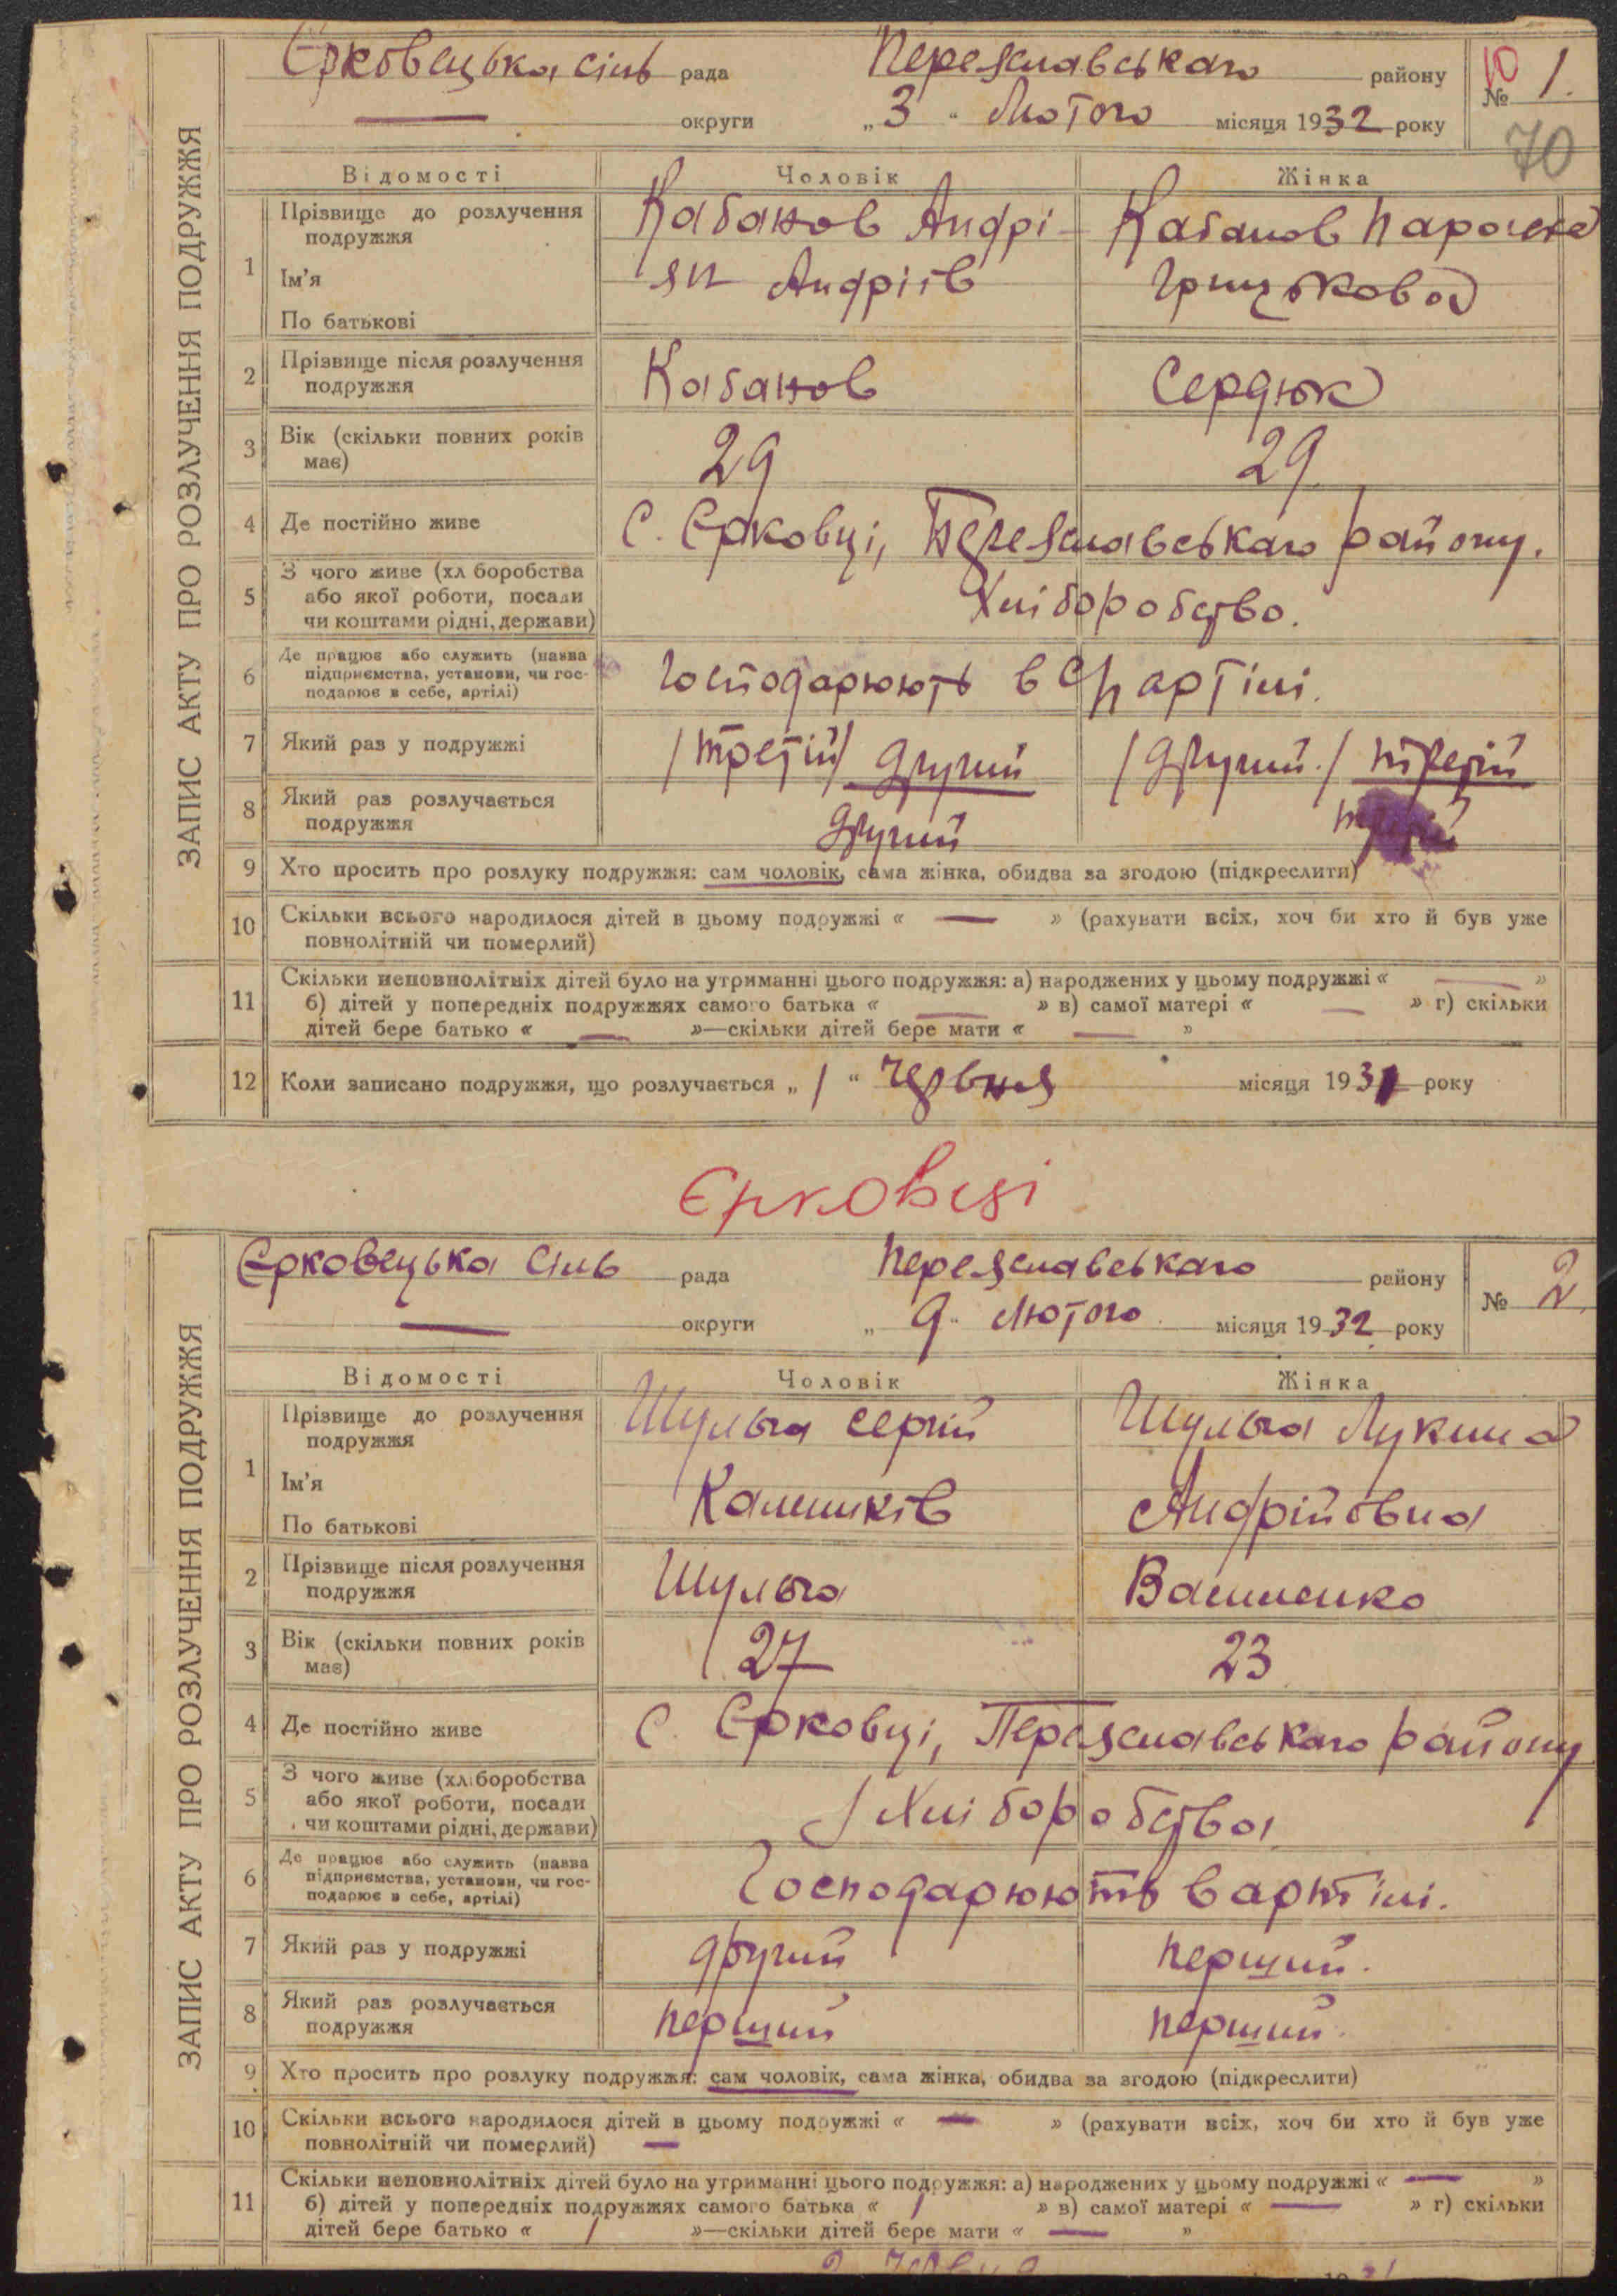 Єрковецька сіль рада Переяславськаго району 10 № 1.
округи „3“ Лютого місяця 1932 року
70
ЗАПИС АКТУ ПРО РОЗЛУЧЕННЯ ПОДРУЖЖЯ
Відомості Чоловік Жінка
1 Прізвище до розлучення Кабанов Андрі- Кабанов Параска
подружжя
Ім'я ян Андріїв Грицькова
По батькові
2 Прізвище після розлучення Кабанов Сердюк
подружжя
3 Вік (скільки повних років 29 29
має)
4 Де постійно живе С. Єрковці, Переяславськаго району.
5 З чого живе (хл боробства Хліборобство.
або якої роботи, посади
чи коштами рідні, держави)
6 Де працює або служить (назва Господарюють в с/г артілі.
підприємства, установи, чи гос-
подарює в себе, артілі)
7 Який раз у подружжі /третій/ другий /другий./ третій
8 Який раз розлучається другий
подружжя
9 Хто просить про розлуку подружжя: сам чоловік, сама жінка, обидва за згодою (підкреслити)
10 Скільки всього народилося дітей в цьому подружжі « — » (рахувати всіх, хоч би хто й був уже
повнолітній чи померлий)
11 Скільки неповнолітніх дітей було на утриманні цього подружжя: а) народжених у цьому подружжі « — »
б) дітей у попередніх подружжях самого батька « — » в) самої матері « — » г) скільки
дітей бере батько « — »—скільки дітей бере мати « — »
12 Коли записано подружжя, що розлучається „1“ Червня місяця 1931 року
Єрковці
Єрковецька сіль рада Переяславськаго району № 2.
округи „9“ Лютого місяця 1932 року
ЗАПИС АКТУ ПРО РОЗЛУЧЕННЯ ПОДРУЖЖЯ
Відомості Чоловік Жінка
1 Прізвище до розлучення Шульга Сергій Шульга Лукина
подружжя
Ім'я Калників Андрійовна
По батькові
2 Прізвище після розлучення Шульга Вашленко
подружжя
3 Вік (скільки повних років 27 23
має)
4 Де постійно живе С. Єрковці, Переяславськаго району
5 З чого живе (хліборобства Хліборобства
або якої роботи, посади
чи коштами рідні, держави)
6 Де працює або служить (назва Господарюють в артілі.
підприємства, установи, чи гос-
подарює в себе, артілі)
7 Який раз у подружжі другий перший.
8 Який раз розлучається перший перший.
подружжя
9 Хто просить про розлуку подружжя: сам чоловік, сама жінка, обидва за згодою (підкреслити)
10 Скільки всього народилося дітей в цьому подружжі « — » (рахувати всіх, хоч би хто й був уже
повнолітній чи померлий) —
11 Скільки неповнолітніх дітей було на утриманні цього подружжя: а) народжених у цьому подружжі « — »
б) дітей у попередніх подружжях самого батька « 1 » в) самої матері « — » г) скільки
дітей бере батько « 1 »—скільки дітей бере мати « — »